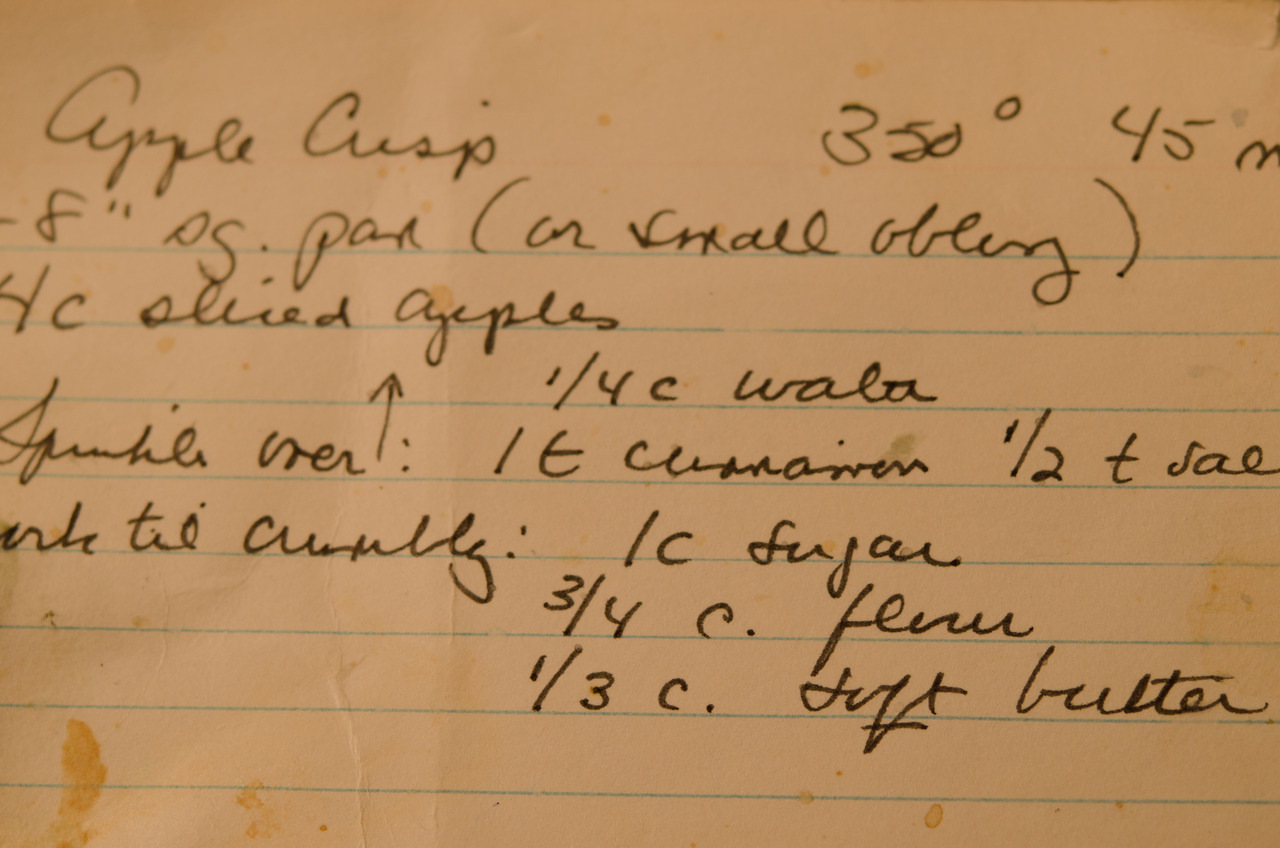 Apple Crisp 350° 45 m
-8" sq. pan (or small oblong)
4c sliced apples
1/4 c water
Sprinkle over ↑: 1 t cinnamon 1/2 t sal
ork til crumbly: 1c sugar
3/4 c. flour
1/3 c. soft butter